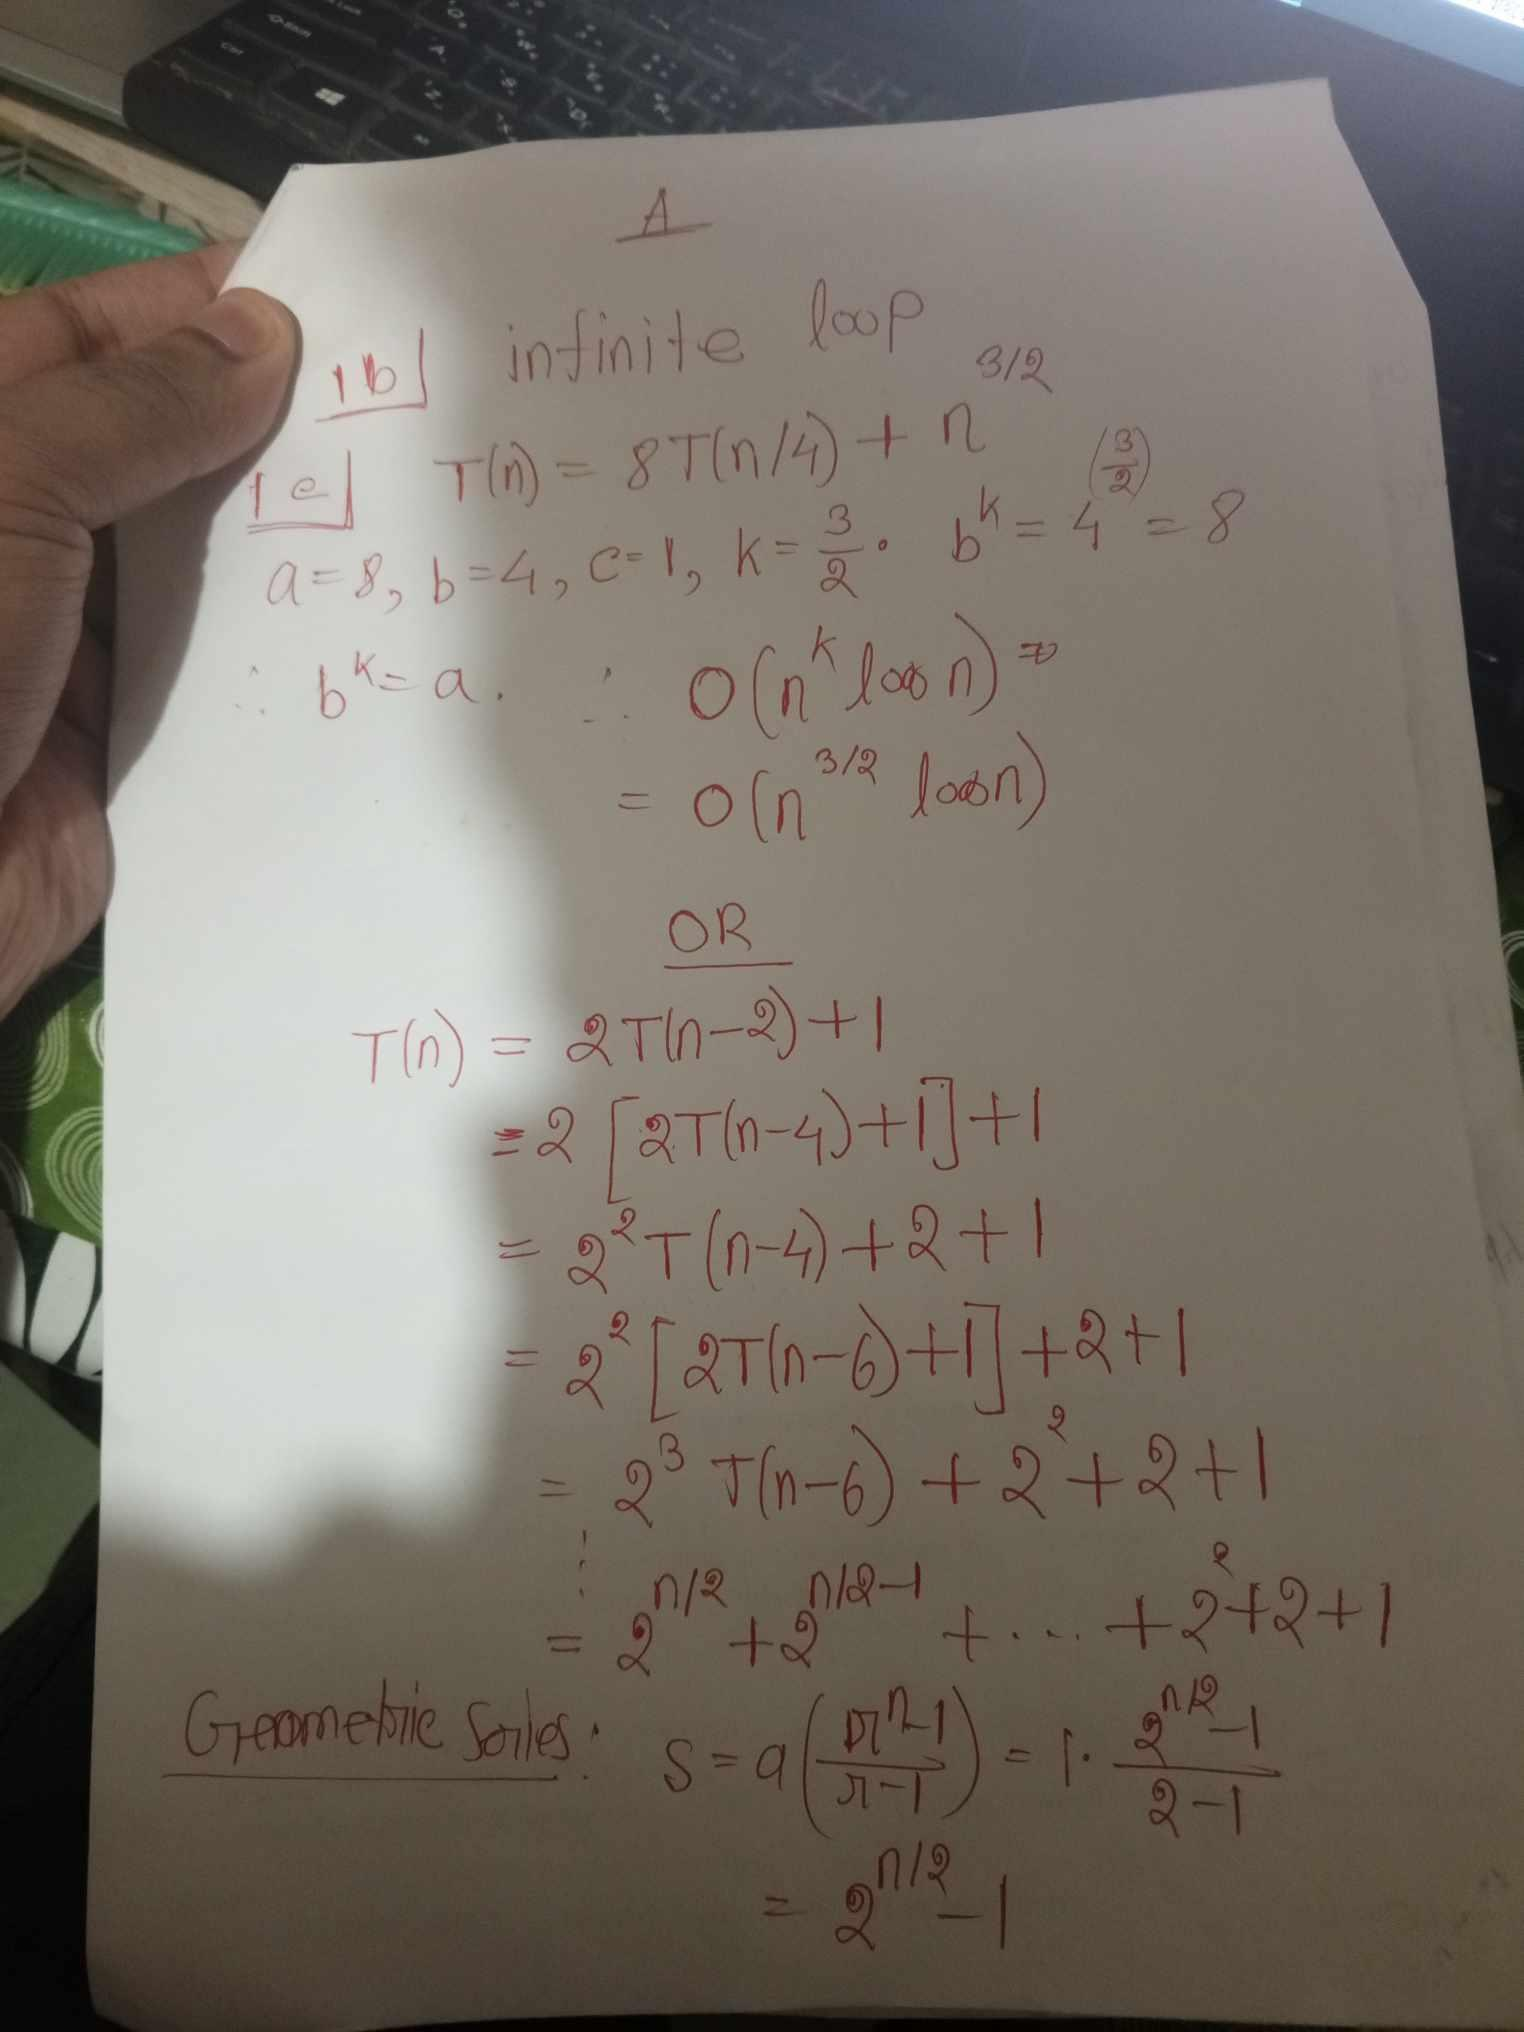 A
1b] infinite loop
1c] T(n) = 8T(n/4) + n^{3/2}
a=8, b=4, c=1, k=3/2. b^k = 4^{(3/2)} = 8
∴ b^k = a. ∴ O(n^k log n) ⇒
= O(n^{3/2} log n)
OR
T(n) = 2T(n-2)+1
= 2 [2T(n-4)+1]+1
= 2^2 T(n-4)+2+1
= 2^2 [2T(n-6)+1]+2+1
= 2^3 T(n-6) + 2^2 + 2 + 1
⋮
= 2^{n/2} + 2^{n/2-1} + ... + 2^2 + 2 + 1
Geometric Series: S = a((r^n-1)/(r-1)) = 1. (2^{n/2}-1)/(2-1)
= 2^{n/2} - 1